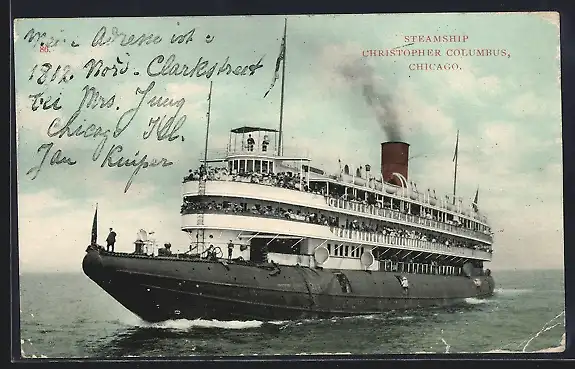 STEAMSHIP
CHRISTOPHER COLUMBUS,
CHICAGO.
86.
Meine Adresse ist
1812. Nord. Clarkstreet
bei Mrs. Jung
Chicago Ill.
Jan Kuiper